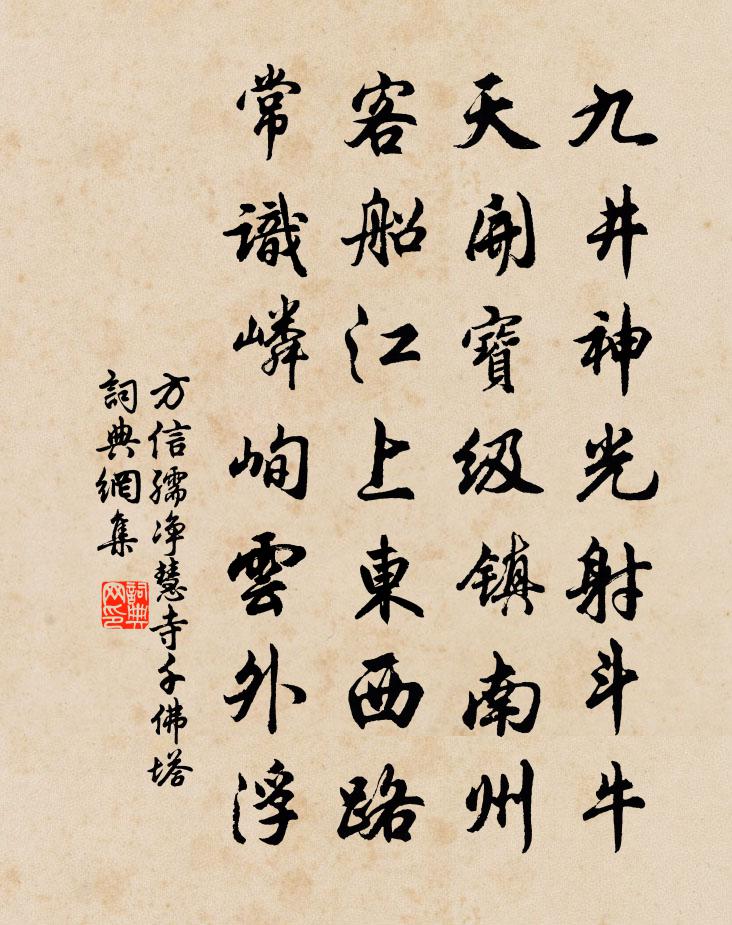 九井神光射斗牛
天開寶級镇南州
客船江上東西路
常識嶙峋雲外浮
方信孺净慧寺千佛塔
詞典網集
詞典网印